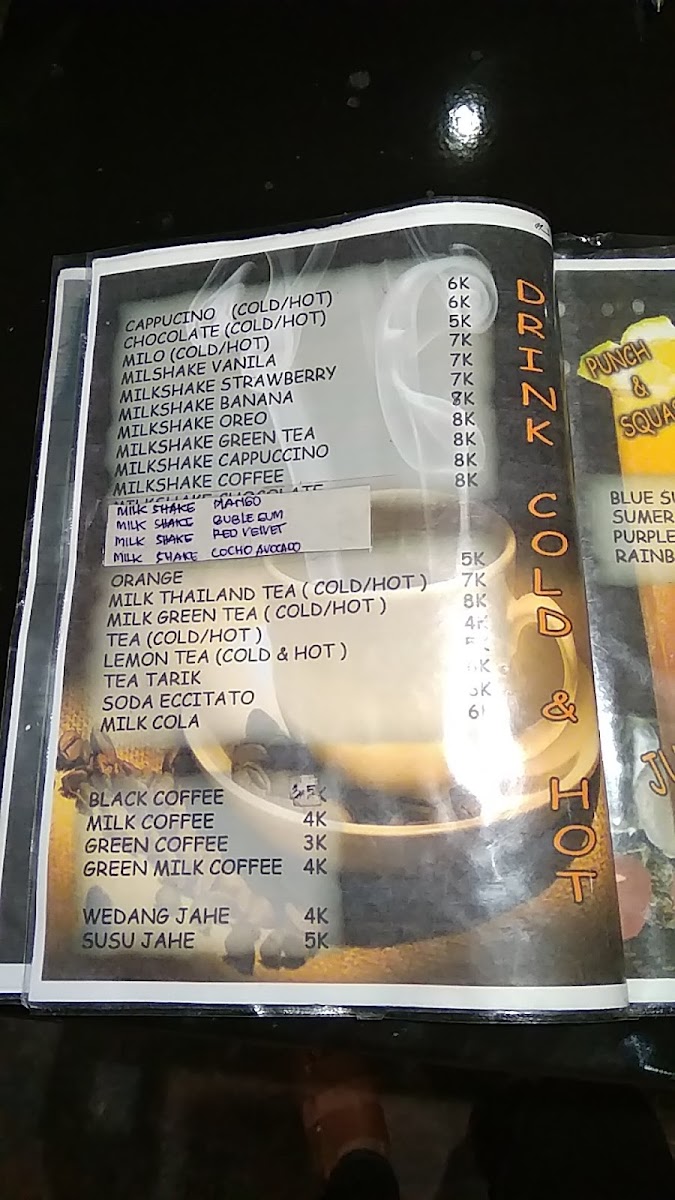 CAPPUCINO (COLD/HOT) 6K
CHOCOLATE (COLD/HOT) 6K
MILO (COLD/HOT) 5K
MILSHAKE VANILA 7K
MILKSHAKE STRAWBERRY 7K
MILKSHAKE BANANA 7K
MILKSHAKE OREO 8K
MILKSHAKE GREEN TEA 8K
MILKSHAKE CAPPUCCINO 8K
MILKSHAKE COFFEE 8K
MILKSHAKE CHOCOLATE 8K
MILK SHAKE MANGO
MILK SHAKE BUBLE GUM
MILK SHAKE RED VELVET
MILK SHAKE COCHO AVOCADO
ORANGE 5K
MILK THAILAND TEA ( COLD/HOT ) 7K
MILK GREEN TEA ( COLD/HOT ) 8K
TEA (COLD/HOT ) 4K
LEMON TEA (COLD & HOT )
TEA TARIK
SODA ECCITATO
MILK COLA
BLACK COFFEE
MILK COFFEE 4K
GREEN COFFEE 3K
GREEN MILK COFFEE 4K
WEDANG JAHE 4K
SUSU JAHE 5K
DRINK COLD & HOT
PUNCH
&
BLUE
PURPLE